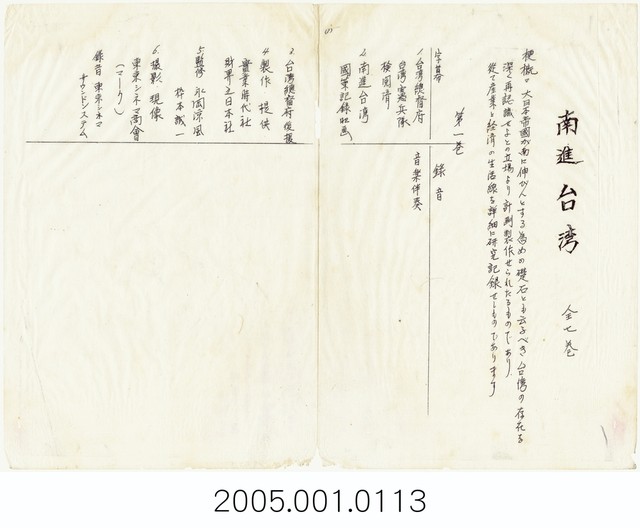 南進台湾 全七巻
梗概。大日本帝國が南に伸びんとする為めの礎石とも云ふべき台湾の存在を
深く再認識せよとの立場より計劃製作せられたるものであり
従て産業と経済の生活線を詳細に研究記録せしものであります
第一巻
字幕 錄音
1 台湾總督府 音楽伴奏
台湾憲兵隊
検閲済
2 南進台湾
國策記録映画
3 台湾總督府後援
4 製作 提供
實業時代社
財界之日本社
5 監修 永岡涼風
杉本誠一
6 撮影 現像
東京シネマ商會
(マーク)
錄音 東京シネマ
サウンドシステム
2005.001.0113